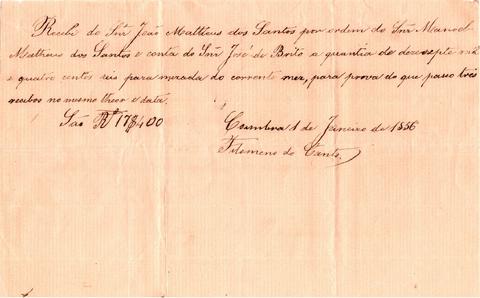 Recebi do Snr João Mattheus dos Santos por ordem do Snr Manoel
Matheus dos Santos e conta do Snr José de Brito a quantia de dezesepte mil
e quatro centos reis para mezada do corrente mez, para prova do que passo tres
recibos no mesmo theor e data.
São Rs 17$400
Coimbra 1 de Janeiro de 1886
Filomeno do Canto.